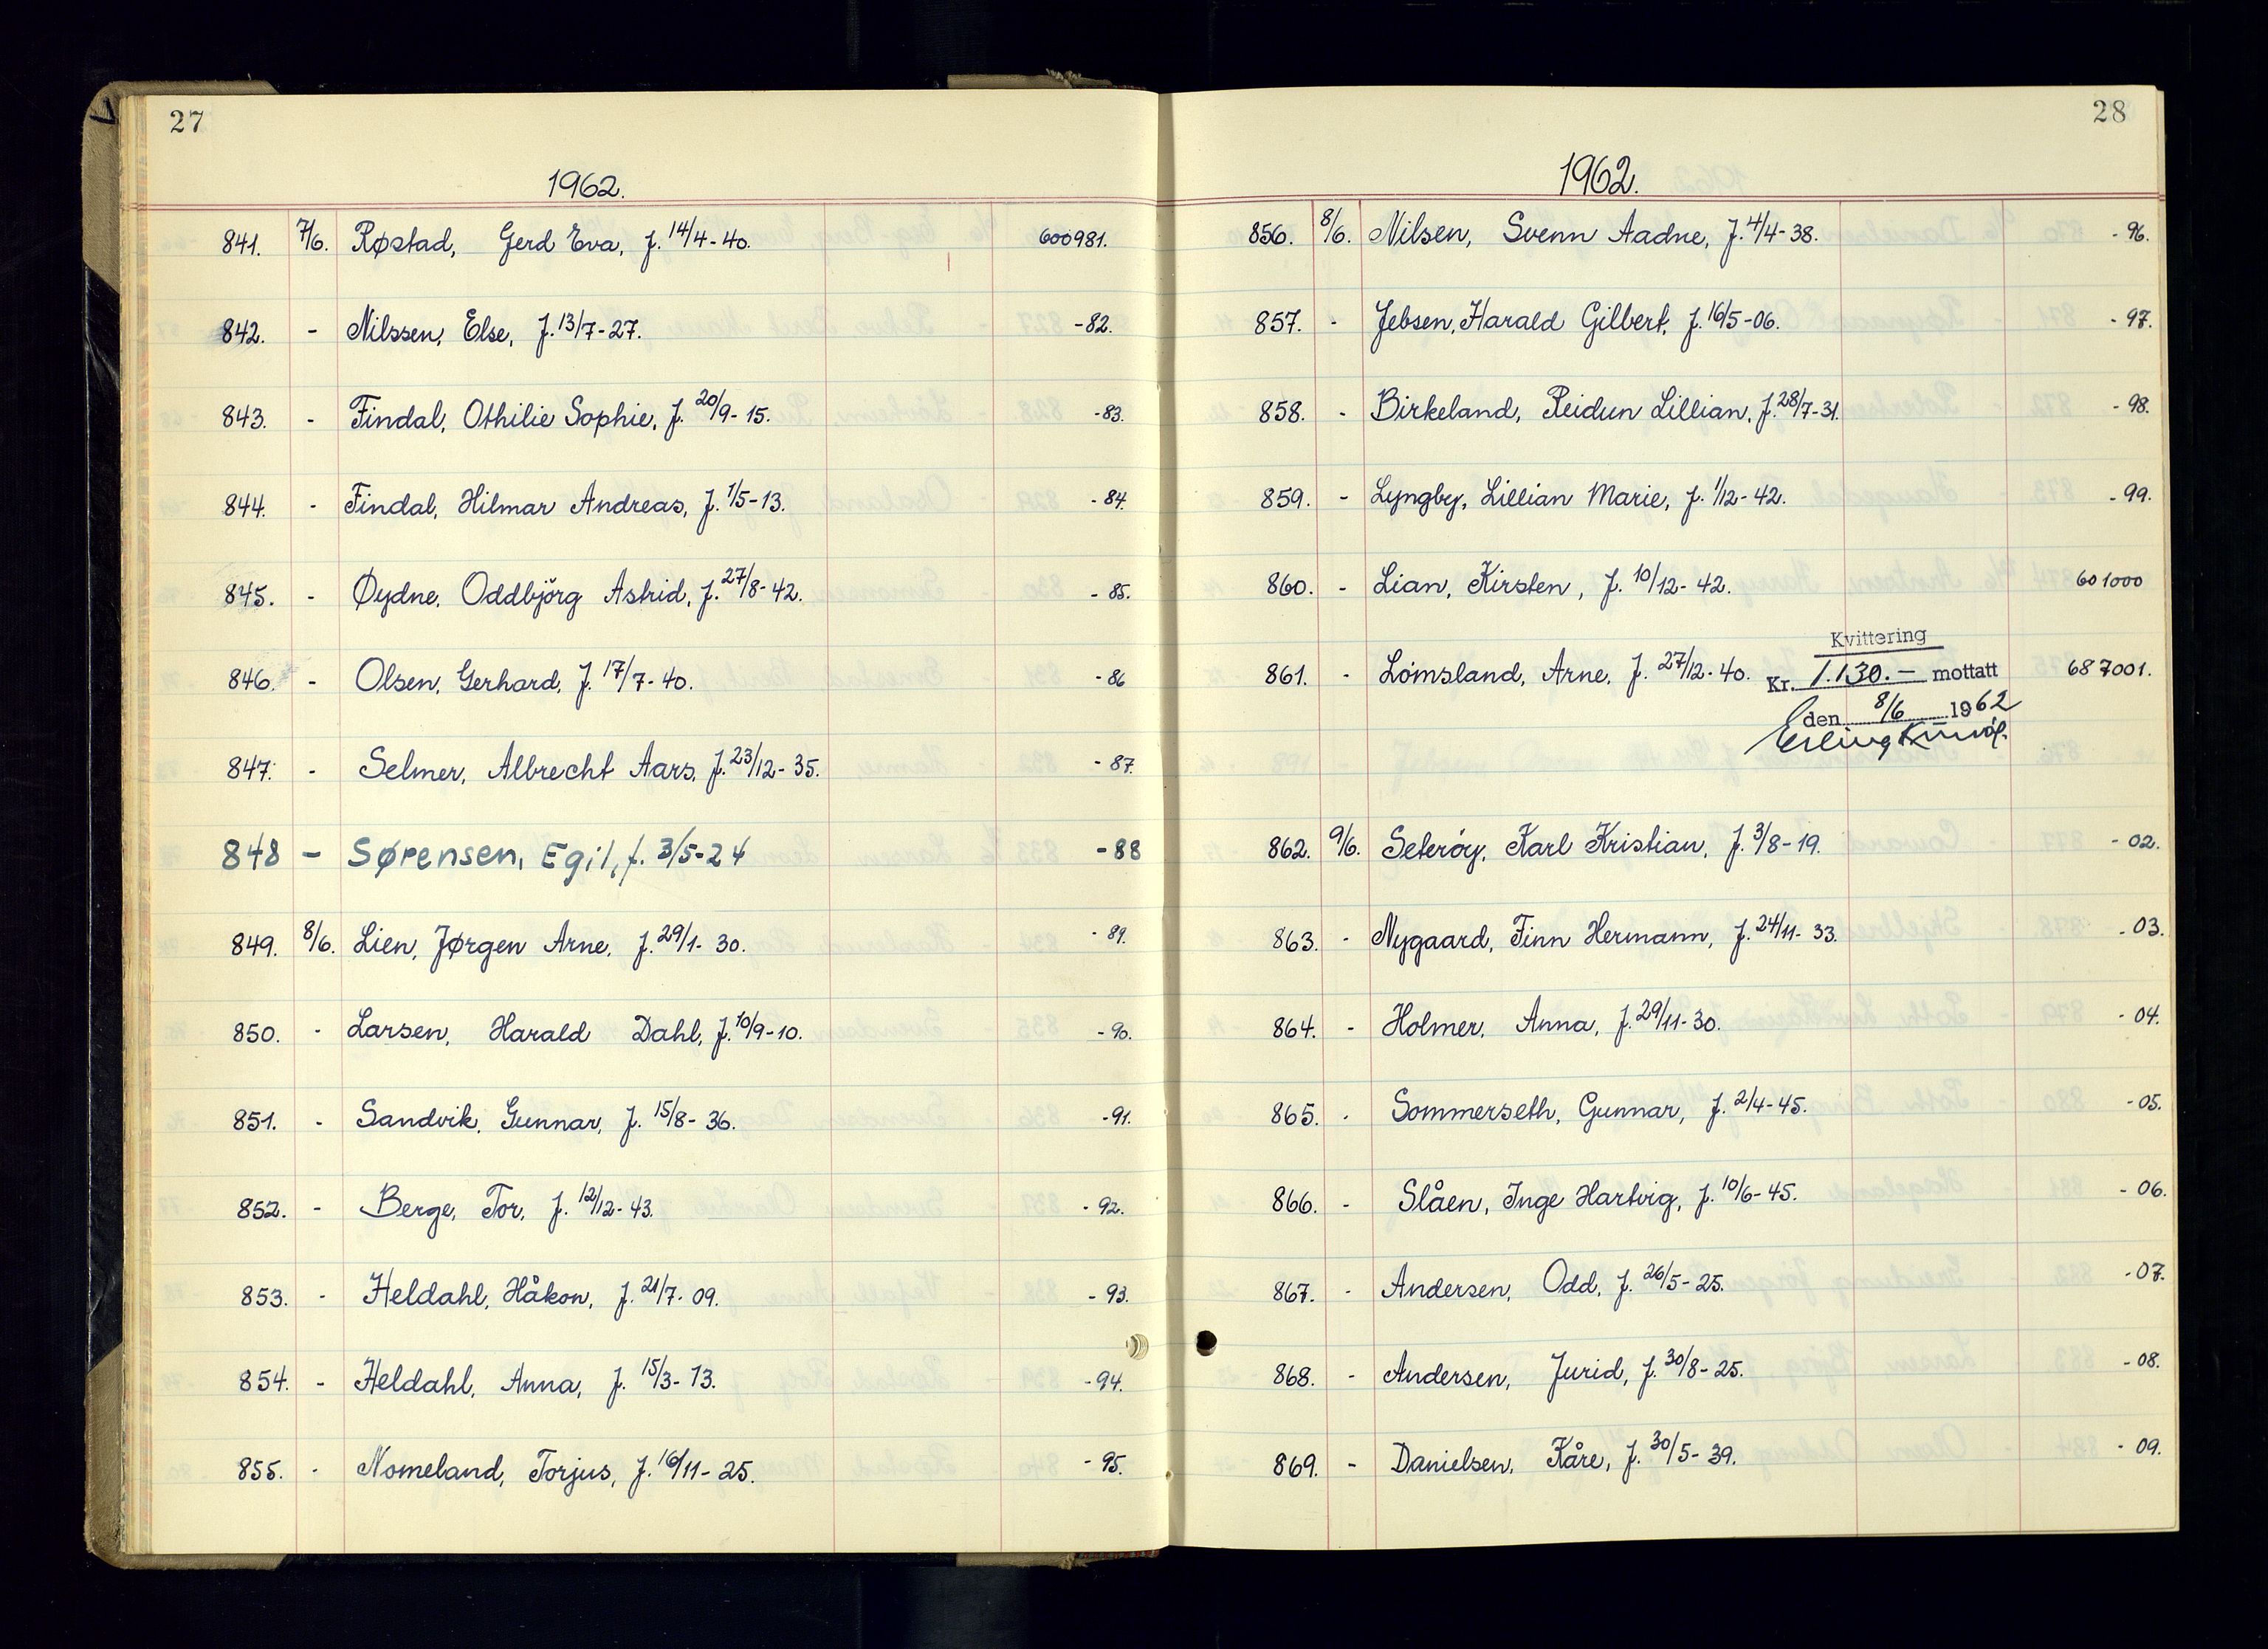 27
1962.
841. 7/6. Røstad, Gerd Eva, f. 14/4-40. 600981.
842. - Nilssen, Else, f. 13/7-27. -82.
843. - Findal, Othilie Sophie, f. 20/9-15. -83.
844. - Findal, Hilmar Andreas, f. 1/5-13. -84.
845. - Øydne, Oddbjörg Astrid, f. 27/8-42. -85.
846. - Olsen, Gerhard, f. 17/7-40. -86
847. - Selmer, Albrecht Aars, f. 23/12-35. -87.
848 - Sørensen, Egil, f. 3/5-24 -88
849. 8/6. Lien, Jørgen Arne, f. 29/1-30. -89.
850. - Larsen, Harald Dahl, f. 10/9-10. -90.
851. - Sandvik, Gunnar, f. 15/8-36. -91.
852. - Berge, Tor, f. 12/12-43. -92.
853. - Heldahl, Håkon, f. 21/7-09. -93.
854. - Heldahl, Anna, f. 15/3-13. -94.
855. - Nomeland, Torjus, f. 16/11-25. -95.
28
1962.
856. 8/6. Nilsen, Svenn Aadne, f. 4/4-38. -96.
857. - Jebsen, Harald Gilbert, f. 16/5-06. -97.
858. - Birkeland, Reidun Lillian, f. 28/7-31. -98.
859. - Lyngby, Lillian Marie, f. 1/12-42. -99.
860. - Lian, Kirsten, f. 10/12-42. 601000
Kvittering
861. - Lømsland, Arne, f. 27/12-40. Kr. 1.130.- mottatt 687001.
den 8/6 1962
Erling
862. 9/6. Seterøy, Karl Kristian, f. 3/8-19. -02.
863. - Nygaard, Finn Hermann, f. 24/11-33. -03.
864. - Holmer, Anna, f. 29/11-30. -04.
865. - Sommerseth, Gunnar, f. 2/4-45. -05.
866. - Slåen, Inge Hartvig, f. 10/6-45. -06.
867. - Andersen, Odd, f. 26/5-25. -07.
868. - Andersen, Jurid, f. 30/8-25. -08.
869. - Danielsen, Kåre, f. 30/5-39. -09.